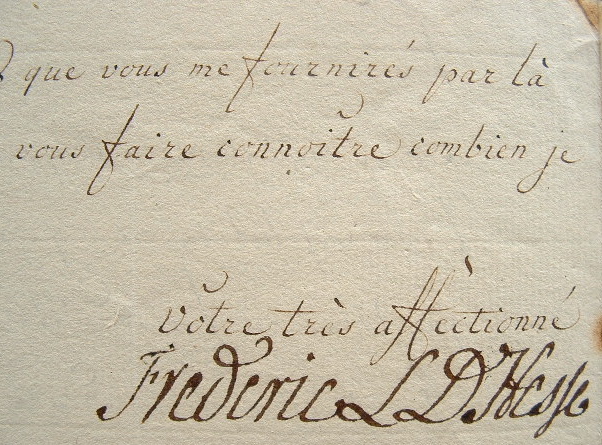 que vous me fournirés par là
vous faire connoître combien je
vôtre très affèctionné
Frederic L D'Hesse